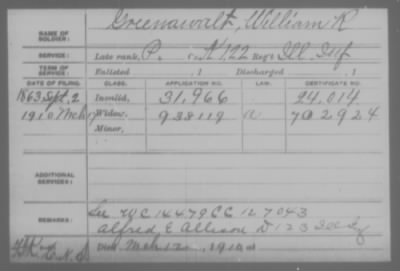 NAME OF SOLDIER: Greenawalt, William R
SERVICE: Late rank, P. Co. N, 122 Reg't Ill Inf
TERM OF SERVICE: Enlisted , 1 Discharged , 1
DATE OF FILING. CLASS. APPLICATION NO. LAW. CERTIFICATE NO.
1863 Sept. 2 Invalid, 31,966 24,014
1910 Mch 17 Widow, 938119 a 702924
Minor,
ADDITIONAL SERVICES:
REMARKS: See WC 14479 CC 127043
Alfred E Allison D 123 Ill
Died Mch 12, 1910